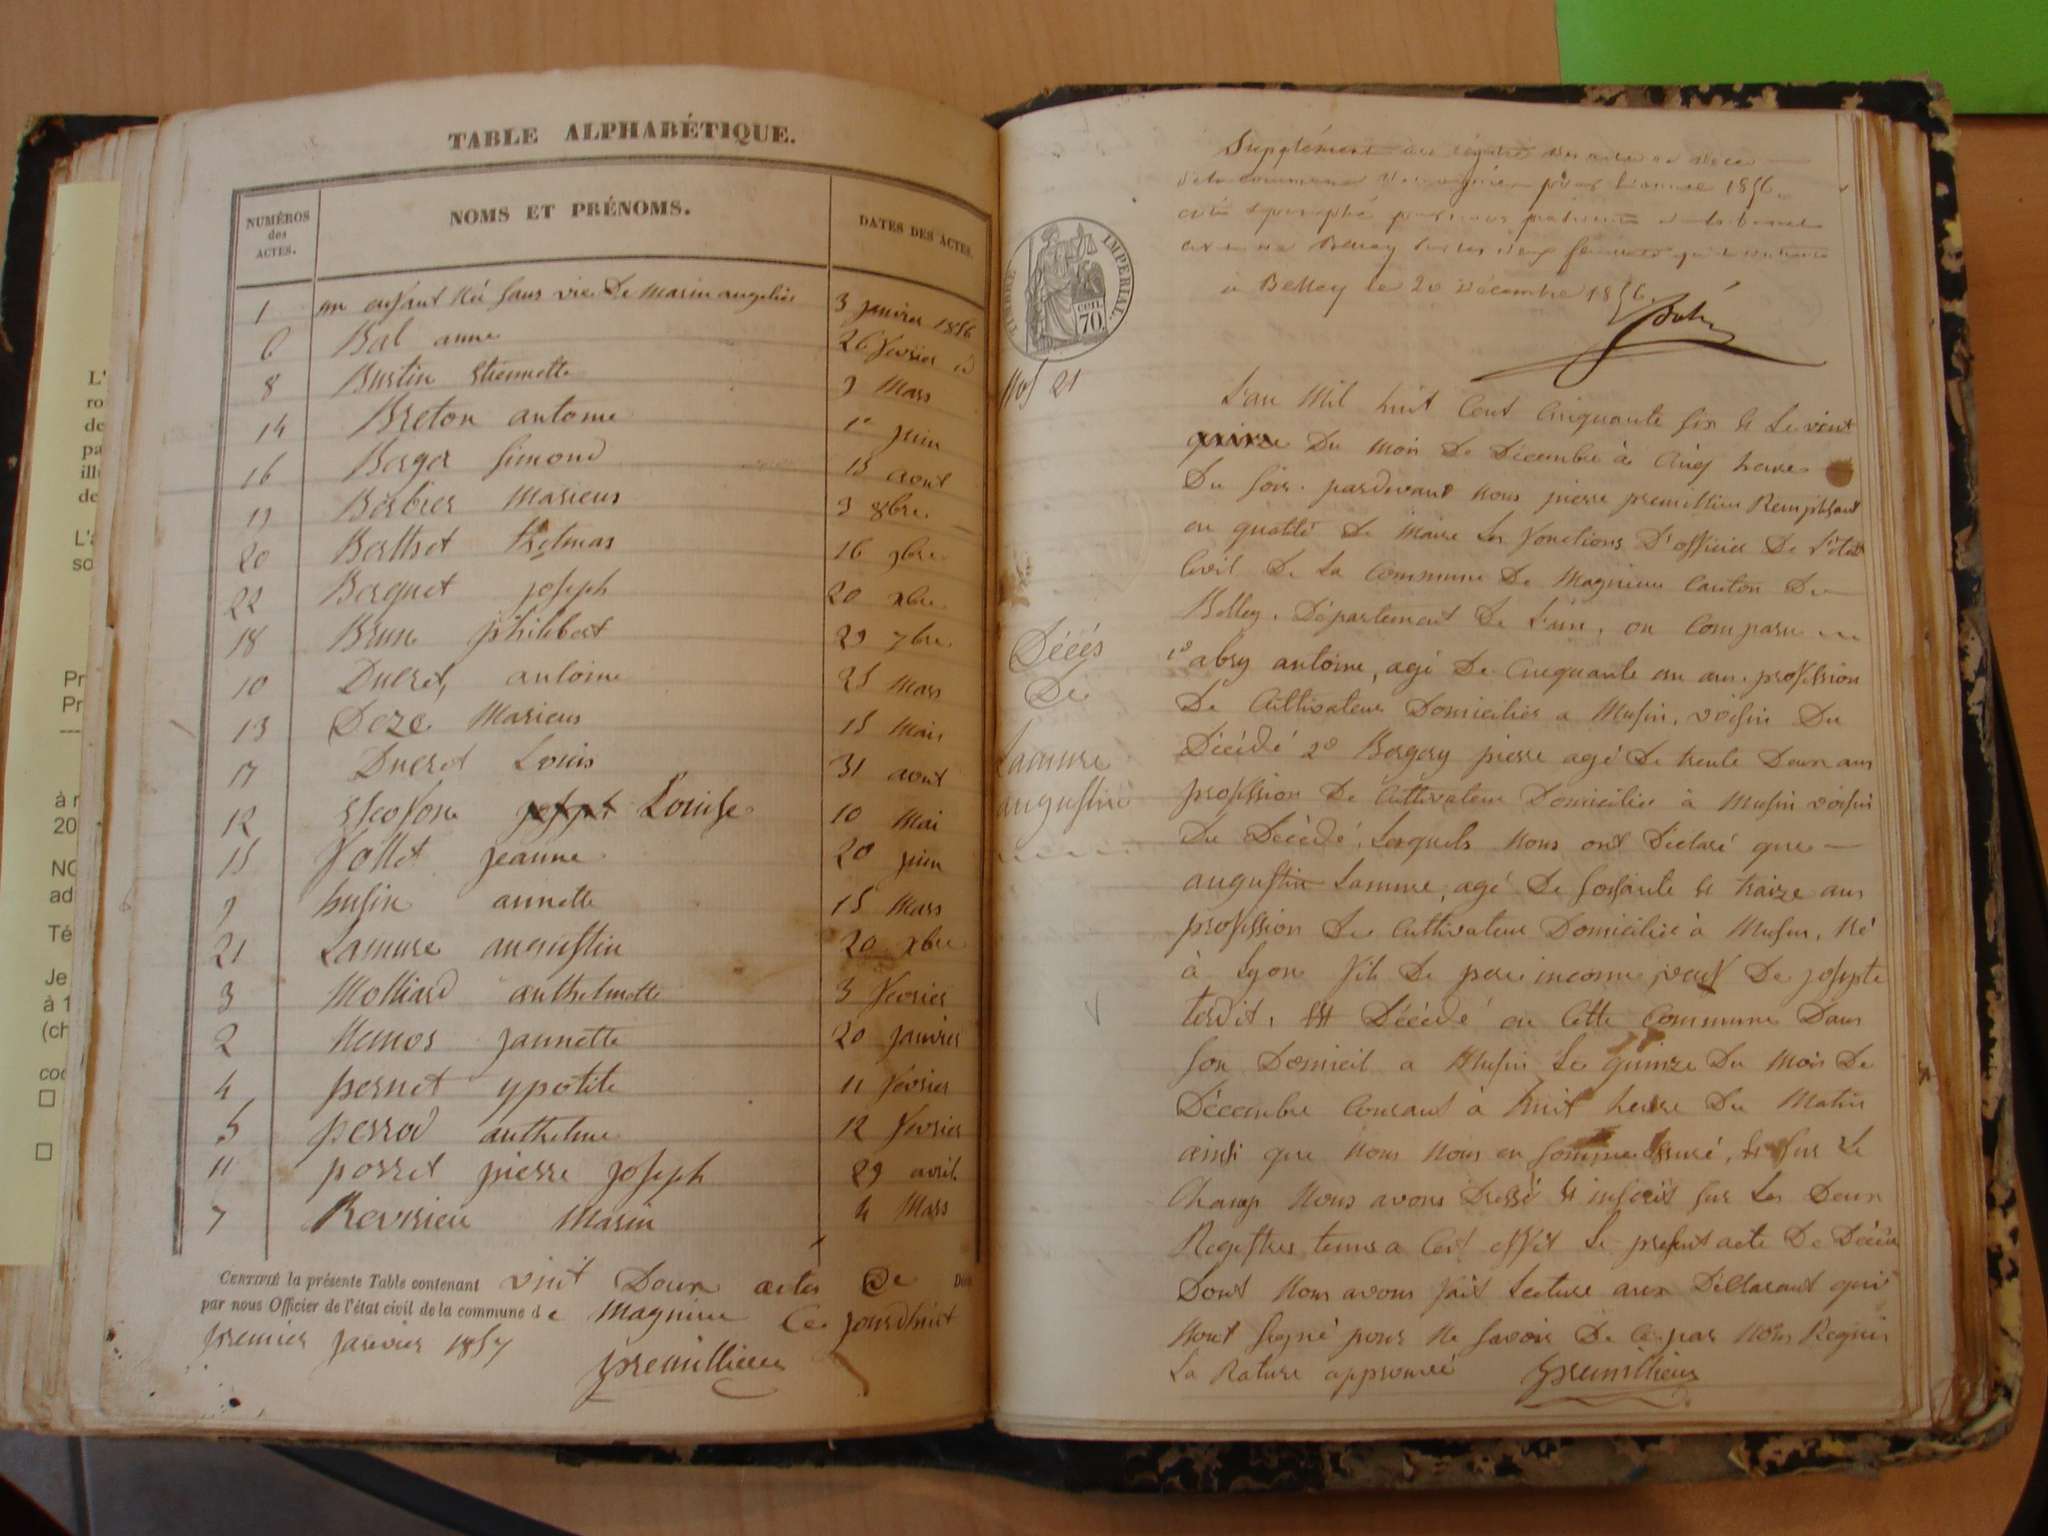 TABLE ALPHABÉTIQUE.
NUMÉROS des ACTES. NOMS ET PRÉNOMS. DATES DES ACTES.
1 un enfant né sans vie De Marin angelier 3 janvier 1856
6 Bal anne 26 fevrier id
8 Bustin Etiennette 9 Mars
14 Breton antoine 1er juin
16 Berger Simond 15 aout
19 Berbier Marieus 9 8bre
20 Berthet 16 9bre
22 Berquet joseph 20 xbre
18 Brun philibert 29 7bre
10 Ducret antoine 25 Mars
13 Dezé Marieus 15 Mai
17 Ducret Louis 31 aout
12 Louise 10 Mai
15 follet jeanne 20 juin
9 husin annette 15 Mars
21 Lamure augustin 20 xbre
3 Molliard anthelmette 3 fevrier
2 jannette 20 janvier
4 pernet ypolite 11 fevrier
5 perrod anthelme 12 fevrier
11 porret pierre joseph 29 avril
7 Revirieu Marin 4 Mars
CERTIFIÉ la présente Table contenant vint Deux actes De
par nous Officier de l'état civil de la commune de Magnieu Ce jourdhuit
premier janvier 1857
premillieu
L'
ro
de
pa
ill
de
L'
so
Pr
Pr
à r
20
NO
ad
Té
Je
à 1
(ch
coc
Supplément au registre des actes de décès
de la commune de magnieu pour l'année 1856
coté & paraphé par nous président du tribunal
à Belley le 20 décembre 1856
TIMBRE IMPÉRIAL
CENT. 70
No 21
Décés
De
Lamure
augustin
L'an Mil huit Cent Cinquante six & Le vint
quinze Du Mois De Décembre à Cinq heure
Du soir. pardevant Nous pierre premillieu Remplisant
en qualité De Maire Les fonctions D'officier De L'état
Civil De La Commune De Magnieu Canton De
Belley, Département De L'ain, on Comparu
1º abry antoine, agé De Cinquante un ans profession
De Cultivateur Domicilier a Musin, voisin Du
Décédé 2º Bergery pierre agé De trente Deux ans
profession De Cultivateur Domicilier à Musin voisin
Du Décédé, Lesquels Nous ont Déclaré que
augustin Lamure, agé De soisante & traize ans
profession De Cultivateur Domicilié à Musin, Né
à Lyon fils De pere inconnu veuf De josepte
terdit, Est Décédé en Cette Commune Dans
son Domicil a Musin Le quinze Du Mois De
Décembre Courant à huit heure Du Matin
ainsi que Nous Nous en somme assuré, & sur Le
Champ Nous avons Dressé & inscrit sur Les Deux
Registres tenus a Cet effet Le present acte De Décès
Dont Nous avons fait Lecture aux Déclarant qui
Nont signé pour Ne savoir De Ce par Nous Requis
La Rature approuvé premillieu